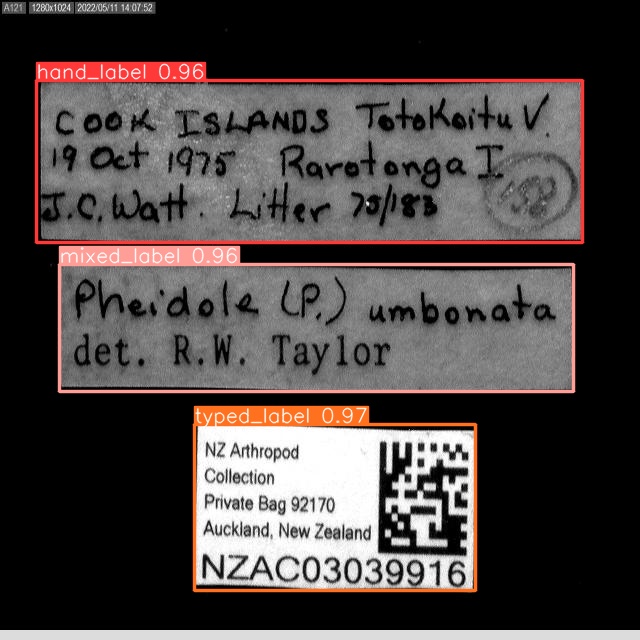 A121 1280x1024 2022/05/11 14:07:52
hand_label 0.96
COOK ISLANDS Totokoitu V.
19 Oct 1975 Rarotonga I
J.C. Watt. Litter 75/183
mixed_label 0.96
Pheidole (P.) umbonata
det. R.W. Taylor
typed_label 0.97
NZ Arthropod
Collection
Private Bag 92170
Auckland, New Zealand
NZAC03039916